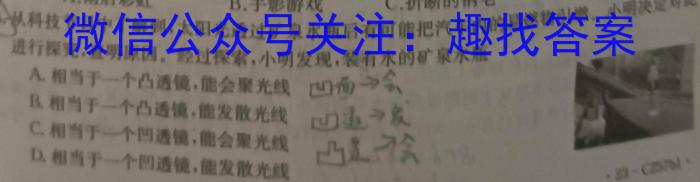 雨后彩虹 B.手影游戏 C.折断的钢笔
小明决定对此
微信公众号关注：趣找答案
进行探究 原因。经过探索,小明发现,装有水的矿泉水瓶
A. 相当于一个凸透镜,能会聚光线
B. 相当于一个凸透镜,能发散光线
C. 相当于一个凹透镜,能会聚光线
D. 相当于一个凹透镜,能发散光线
凹面→会
凹透→发
凸透→会
·23-CZ57b1·